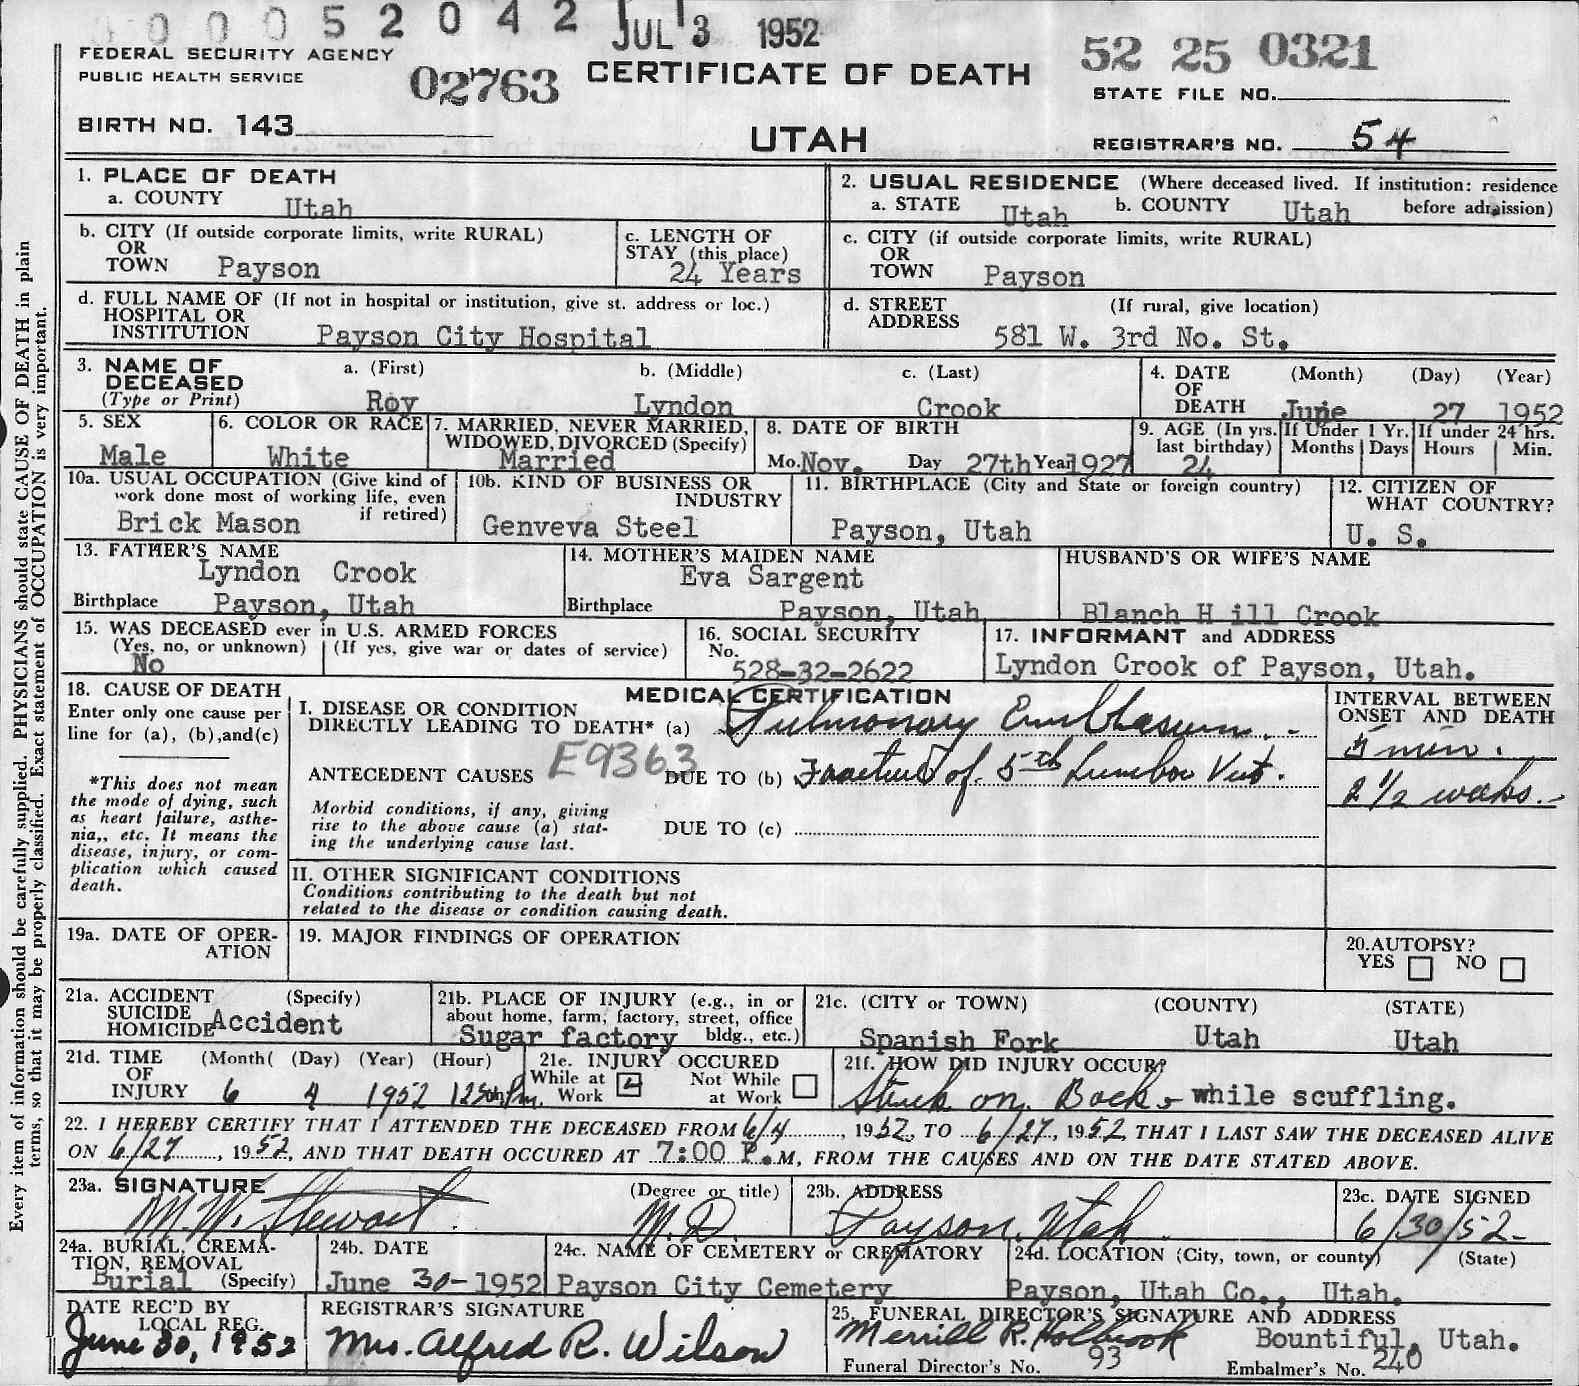 00052042 JUL 3 1952
FEDERAL SECURITY AGENCY
PUBLIC HEALTH SERVICE
02763
CERTIFICATE OF DEATH
52 25 0321
STATE FILE NO.
BIRTH NO. 143
UTAH
REGISTRAR'S NO. 54
1. PLACE OF DEATH
a. COUNTY Utah
2. USUAL RESIDENCE (Where deceased lived. If institution: residence before admission)
a. STATE Utah b. COUNTY Utah
b. CITY (If outside corporate limits, write RURAL)
OR
TOWN Payson
c. LENGTH OF
STAY (this place)
24 Years
c. CITY (if outside corporate limits, write RURAL)
OR
TOWN Payson
d. FULL NAME OF (If not in hospital or institution, give st. address or loc.)
HOSPITAL OR
INSTITUTION Payson City Hospital
d. STREET (If rural, give location)
ADDRESS 581 W. 3rd No. St.
3. NAME OF
DECEASED
(Type or Print)
a. (First) b. (Middle) c. (Last)
Roy Lyndon Crook
4. DATE (Month) (Day) (Year)
OF
DEATH June 27 1952
5. SEX
Male
6. COLOR OR RACE
White
7. MARRIED, NEVER MARRIED,
WIDOWED, DIVORCED (Specify)
Married
8. DATE OF BIRTH
Mo. Nov. Day 27th Year 1927
9. AGE (In yrs.
last birthday)
24
If Under 1 Yr.
Months Days
If under 24 hrs.
Hours Min.
10a. USUAL OCCUPATION (Give kind of
work done most of working life, even
if retired)
Brick Mason
10b. KIND OF BUSINESS OR
INDUSTRY
Genveva Steel
11. BIRTHPLACE (City and State or foreign country)
Payson, Utah
12. CITIZEN OF
WHAT COUNTRY?
U. S.
13. FATHER'S NAME
Lyndon Crook
Birthplace Payson, Utah
14. MOTHER'S MAIDEN NAME
Eva Sargent
Birthplace Payson, Utah
HUSBAND'S OR WIFE'S NAME
Blanch H ill Crook
15. WAS DECEASED ever in U.S. ARMED FORCES
(Yes, no, or unknown) (If yes, give war or dates of service)
No
16. SOCIAL SECURITY
No.
528-32-2622
17. INFORMANT and ADDRESS
Lyndon Crook of Payson, Utah.
18. CAUSE OF DEATH
Enter only one cause per
line for (a), (b),and(c)
*This does not mean
the mode of dying, such
as heart failure, asthe-
nia,, etc. It means the
disease, injury, or com-
plication which caused
death.
MEDICAL CERTIFICATION
I. DISEASE OR CONDITION
DIRECTLY LEADING TO DEATH* (a) Pulmonary
INTERVAL BETWEEN
ONSET AND DEATH
5 min.
ANTECEDENT CAUSES E9363 DUE TO (b) Fracture of 5th Lumbar Vert.
2 1/2 weeks.
Morbid conditions, if any, giving
rise to the above cause (a) stat-
ing the underlying cause last.
DUE TO (c)
II. OTHER SIGNIFICANT CONDITIONS
Conditions contributing to the death but not
related to the disease or condition causing death.
19a. DATE OF OPER-
ATION
19. MAJOR FINDINGS OF OPERATION
20.AUTOPSY?
YES NO
21a. ACCIDENT (Specify)
SUICIDE
HOMICIDE Accident
21b. PLACE OF INJURY (e.g., in or
about home, farm, factory, street, office
bldg., etc.)
Sugar factory
21c. (CITY or TOWN) (COUNTY) (STATE)
Spanish Fork Utah Utah
21d. TIME (Month( (Day) (Year) (Hour)
OF
INJURY 6 4 1952
21e. INJURY OCCURED
While at
Work
Not While
at Work
21f. HOW DID INJURY OCCUR?
Struck on Back while scuffling.
22. I HEREBY CERTIFY THAT I ATTENDED THE DECEASED FROM 6/4, 1952, TO 6/27, 1952, THAT I LAST SAW THE DECEASED ALIVE
ON 6/27, 1952, AND THAT DEATH OCCURED AT 7:00 P.M, FROM THE CAUSES AND ON THE DATE STATED ABOVE.
23a. SIGNATURE (Degree or title)
M. W. Stewart M.D.
23b. ADDRESS
Payson, Utah
23c. DATE SIGNED
6/30/52
24a. BURIAL, CREMA-
TION, REMOVAL
Burial (Specify)
24b. DATE
June 30-1952
24c. NAME OF CEMETERY or CREMATORY
Payson City Cemetery
24d. LOCATION (City, town, or county) (State)
Payson, Utah Co., Utah.
DATE REC'D BY
LOCAL REG.
June 30, 1952
REGISTRAR'S SIGNATURE
Mrs. Alfred R. Wilson
25. FUNERAL DIRECTOR'S SIGNATURE AND ADDRESS
Merrill R. Holbrook Bountiful, Utah.
Funeral Director's No. 93 Embalmer's No. 240
Every item of information should be carefully supplied. PHYSICIANS should state CAUSE OF DEATH in plain
terms, so that it may be properly classified. Exact statement of OCCUPATION is very important.